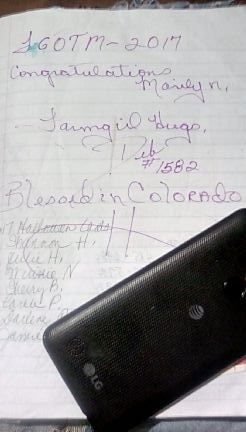 LGOTM-2017
Congratulations
Marilyn,
Farmgirl Hugs,
Deb
#1582
Blessed in COLORADO
Halloween Cards
Shannon H,
Julie H,
Winnie N
Sherry B.
P
Darlene
AT&T
LG